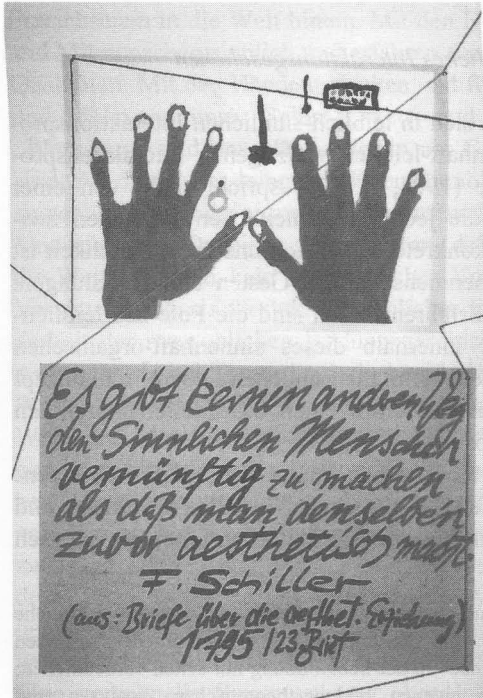 Es gibt keinen andren Weg
den Sinnlichen Menschen
vernünftig zu machen
als daß man denselben
zuvor aesthetisch macht.
F. Schiller
(aus: Briefe über die aesthet. Erziehung)
1795 / 23. Brief